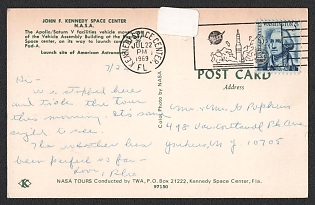 JOHN F. KENNEDY SPACE CENTER
N.A.S.A.
The Apollo/Saturn V facilities vehicle moves out
of the Vehicle Assembly Building at the
Space center, on its way to launch complex
Pad-A.
Launch site of American Astronauts
KENNEDY SPACE CENTER
JUL 22
PM
1969
FL
WASHINGTON
POST CARD
Address
7/2
Hi -
We stopped here
and took the tour
this morning. It's some
sight to see.
The weather has
been perfect so far -
Love,
Mr. & Mrs. G.
498 Park Ave.
Yonkers, N.Y. 10705
Color Photo by NASA
K
NASA TOURS Conducted by TWA, P.O. BOX 21222, Kennedy Space Center, Fla.
97130